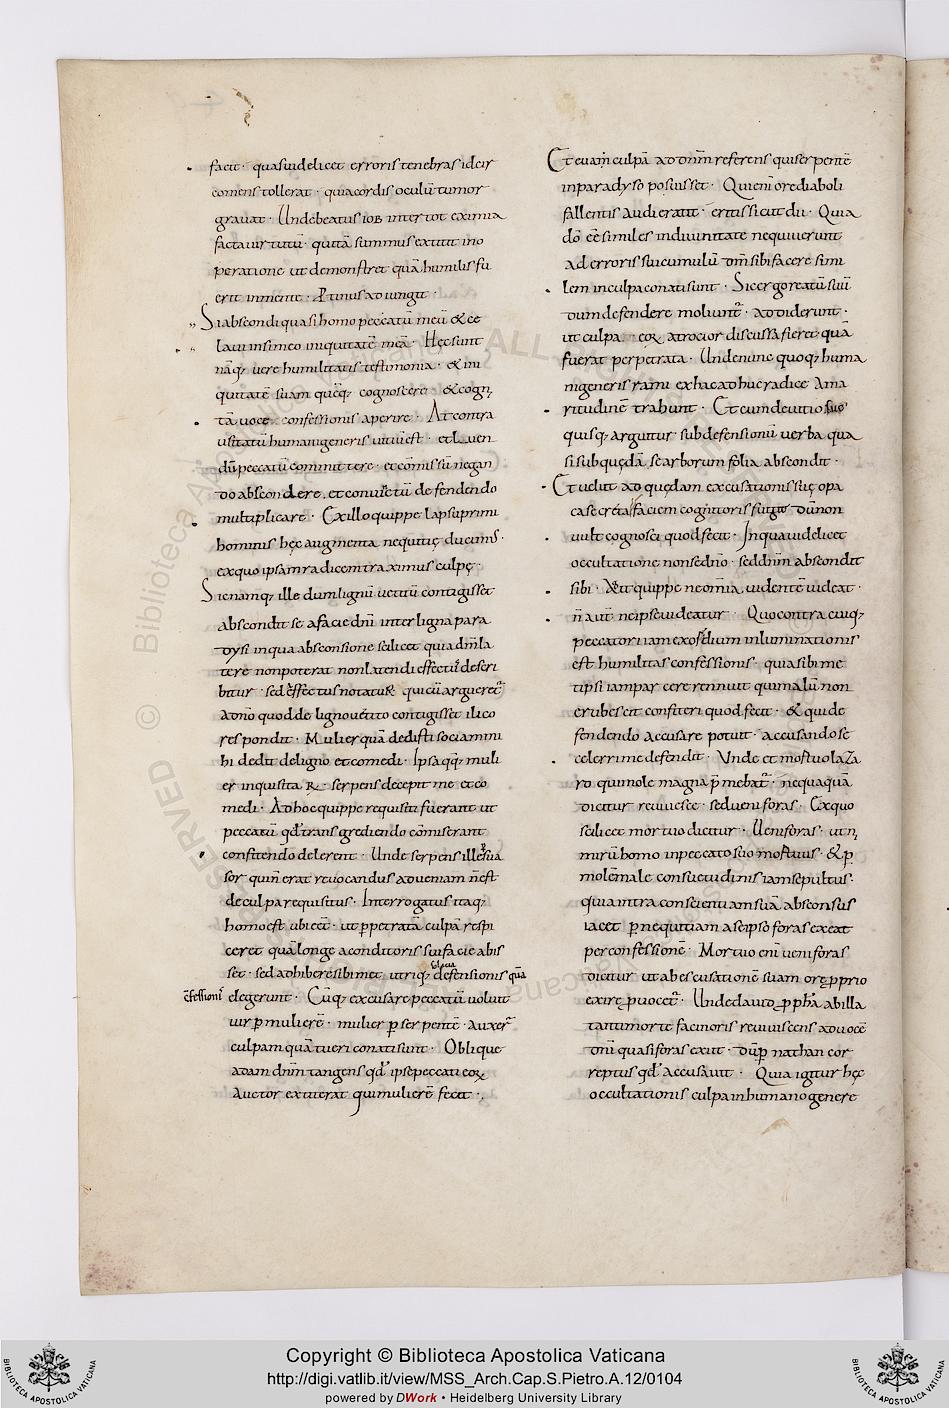 facit · quasuidelicet erroris tenebras ideir
comens tollerat · quia cordis oculū tumor
grauat · Unde beatus iob inter tot eximia
facta uirtutū · qui tā summus extitit in o
peratione ut demonstret quā humilis fu
erit in mente · Protinus adiungit ·
Si abscondi quasi homo peccatū meū & ce
laui in sinu meo iniquitatē meā · Hęc sunt
nāq; uere humilitatis testimonia · & ini
quitatē suam quēq; cognoscere · & cogni
tā uoce confessionis aperire · At contra
usitatū humani generis uitiū est · et laten
dū peccatū committere · et cōmissū negan
do abscondere · et conuictū defendendo
multiplicare · Ex illo quippe lapsu primi
hominis hęc augmenta nequitię ducimus ·
ex quo ipsam radicem traximus culpę ·
Sic namq; ille dum lignū uetitū contigisset
abscondit se a facie dn̄i inter ligna para
dysi in qua absconsione scilicet quia dn̄m la
tere non poterat non latendi effectus descri
bitur · sed effectus notatur qui cū argueret̃
a dn̄o quod de ligno uetito contigisset ilico
respondit · Mulier quā dedisti sociam mi
hi dedit de ligno et comedi · Ipsa q̄q; muli
er inquisita R̄ · serpens decepit me et co
medi · Ad hoc quippe requisiti fuerant ut
peccatū qđ transgrediendo cōmiserant
confitendo delerent · Unde serpens ille psua
sor qui n̄ erat reuocandus ad ueniam n̄ est
de culpa requisitus · Interrogatus itaq;
homo est ubi eēt · ut ppetratā culpā respi
ceret quā longe a conditoris sui facie abis
set · sed adhibere sibimet utriq; solacia defensionis quā
c̄fessionis elegerunt · Cūq; excusare peccatū uoluit
uir p mulierē · mulier p serpentē · auxer̃
culpam quā tueri conati sunt · Oblique
adam dn̄m tangens qđ ipse peccati eorꝝ
auctor extiterat qui mulierē fecit ·
Et eua suā culpā ad dn̄m referens qui serpentē
in paradyso posuisset · Qui enī ore diaboli
fallentis audierant · eritis sicut dii · Quia
dō eē similes in diuinitate nequiuerunt
ad erroris sui cumulū dn̄m sibi facere simi
lem in culpa conati sunt · Sic ergo reatū suū
dum defendere moliunt̃ · addiderunt ·
ut culpa eorꝝ atrocior discussa fieret quā
fuerat perpetrata · Unde nunc quoq; huma
ni generis rami ex hac adhuc radice ama
ritudinē trahunt · Et cum de uitio suo
quisq; arguitur · sub defensionū uerba qua
si sub quędā se arborum folia abscondit ·
Et uelut ad quędam excusationis suę opa
ca secreta faciem cognitoris fugit dū non
uult cognosci quod fecit · In qua uidelicet
occultatione non se dn̄o · sed dn̄m abscondit
sibi · Agit quippe ne omnia uidentē uideat ·
n̄ aut̄ ne ipse uideatur · Quo contra cuiq;
peccatori iam exordium inluminationis
est humilitas confessionis · quia sibi me
tipsi iam parcere rennuit qui malū non
erubescit confiteri quod fecit · & qui de
fendendo accusare potuit · accusando se
celerrime defendit · Unde et mortuo laza
ro qui mole magna p̄mebat̃ · nequaquā
dicitur reuiuisce · sed ueni foras · Ex quo
scilicet mortuo dicitur · Ueni foras · ut ni
mirū homo in peccato suo mortuus · & p
molē malę consuetudinis iam sepultus ·
quia intra conscientiam suā absconsus
iacet p nequitiam a se ipso foras exeat
per confessionē · Mortuo enī ueni foras
dicitur ut ab excusationē suam ore pprio
exire puocet̃ · Unde dauid pph̄a ab illa
tanti morte facinoris reuiuiscens ad uocē
dn̄i quasi foras exiit · dū p nathan cor
reptus qđ accusauit · Quia igitur hęc
occultationis culpa in humano genere
Copyright © Biblioteca Apostolica Vaticana
http://digi.vatlib.it/view/MSS_Arch.Cap.S.Pietro.A.12/0104
powered by DWork • Heidelberg University Library